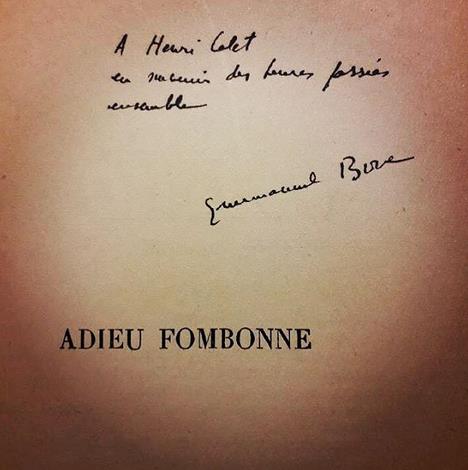 A Henri Calet
en souvenir des heures passées
ensemble
Emmanuel Bove
ADIEU FOMBONNE